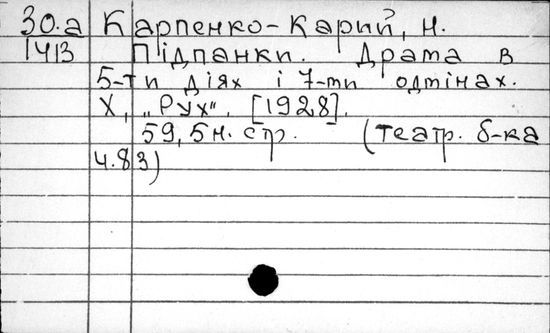 30.а Карпенко-Карий, И.
1413 Підпанки. Драма в
5-ти діях і 7-ми одмінах.
Х., „Рух". [1928].
59, 5н. стр. (театр. б-ка
ч. 83)